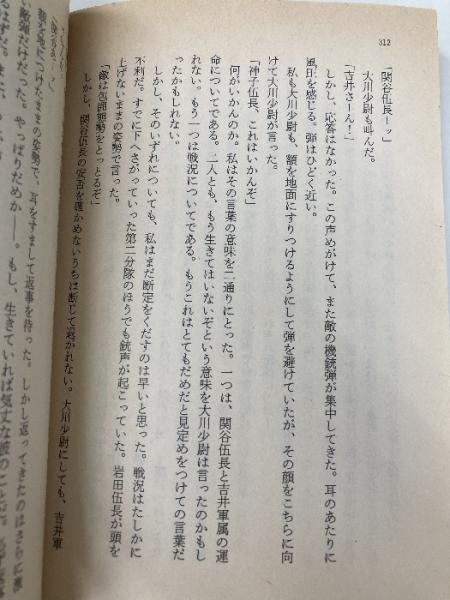 312
「関谷伍長ーッ」
大川少尉も叫んだ。
「吉井さーん！」
しかし、応答はなかった。この声めがけて、また敵の機銃弾が集中してきた。耳のあたりに
風圧を感じる。弾はひどく近い。
私も大川少尉も、額を地面にすりつけるようにして弾を避けていたが、その顔をこちらに向
けて大川少尉が言った。
「神子伍長、これはいかんぞ」
何がいかんのか。私はその言葉の意味を二通りにとった。一つは、関谷伍長と吉井軍属の運
命についてである。二人とも、もう生きてはいないぞという意味を大川少尉は言ったのかもし
れない。もう一つは戦況についてである。もうこれはとてもだめだと見定めをつけての言葉だ
ったかもしれない。
しかし、そのいずれについても、私はまだ断定をくだすのは早いと思った。戦況はたしかに
不利だ。すでに下へさがっていった第二分隊のほうでも銃声が起こっていた。岩田伍長が頭を
上げないままの姿勢で言った。
「敵は包囲態勢をとっとるぞ」
しかし、関谷伍長の安否を確かめないうちは断じて退かれない。大川少尉にしても、吉井軍
につけたままの姿勢で、耳をすまして返事を待った。しかし返ってきたのはさらに激
い敵弾だけだった。やっぱりだめか――。もし、生きていれば気丈な彼のことだ